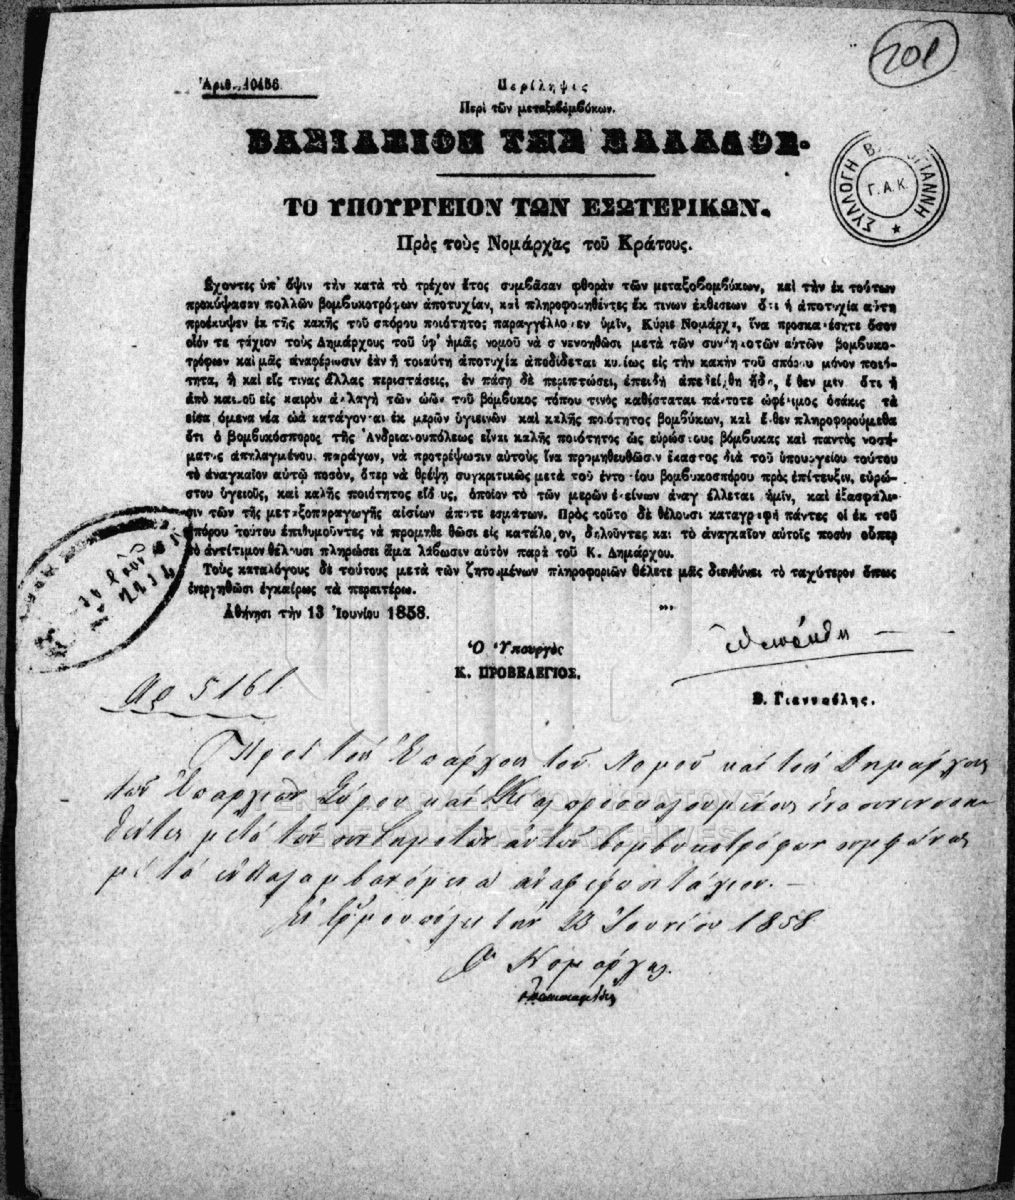 201
Ἀριθ. 10456
Περίληψις
Περὶ τῶν μεταξοβομβύκων.
ΒΑΣΙΛΕΙΟΝ ΤΗΣ ΕΛΛΑΔΟΣ.
ΣΥΛΛΟΓΗ ΓΙΑΝΝΗ
Γ.Α.Κ.
ΤΟ ΥΠΟΥΡΓΕΙΟΝ ΤΩΝ ΕΣΩΤΕΡΙΚΩΝ.
Πρὸς τοὺς Νομάρχας τοῦ Κράτους.
Ἔχοντες ὑπ' ὄψιν τὴν κατὰ τὸ τρέχον ἔτος συμβᾶσαν φθορὰν τῶν μεταξοβομβύκων, καὶ τὴν ἐκ τούτων
προκύψασαν πολλῶν βομβυκοτρόφων ἀποτυχίαν, καὶ πληροφορηθέντες ἔκ τινων ἐκθέσεων ὅτι ἡ ἀποτυχία αὕτη
προέκυψεν ἐκ τῆς κακῆς τοῦ σπόρου ποιότητος παραγγέλλομεν ὑμῖν, Κύριε Νομάρχα, ἵνα προσκαλέσητε ὅσον
οἷόν τε τάχιον τοὺς Δημάρχους τοῦ ὑφ' ἡμᾶς νομοῦ νὰ συνενοηθῶσι μετὰ τῶν συνδημοτῶν αὐτῶν βομβυκο-
τρόφων καὶ μᾶς ἀναφέρωσιν ἐὰν ἡ τοιαύτη ἀποτυχία ἀποδίδεται κυρίως εἰς τὴν κακὴν τοῦ σπόρου μόνον ποιό-
τητα, ἢ καὶ εἴς τινας ἄλλας περιστάσεις, ἐν πάσῃ δὲ περιπτώσει, ἐπειδὴ ἀπεδείχθη ἤδη, ἔνθεν μὲν ὅτι ἡ
ἀπὸ καιροῦ εἰς καιρὸν ἀλλαγὴ τῶν ὠῶν τοῦ βόμβυκος τόπου τινὸς καθίσταται πάντοτε ὠφέλιμος ὁσάκις τὰ
εἰσαγόμενα νέα ὠὰ κατάγονται ἐκ μερῶν ὑγιεινῶν καὶ καλῆς ποιότητος βομβύκων, καὶ ἔνθεν πληροφορούμεθα
ὅτι ὁ βομβυκόσπορος τῆς Ἀνδριανουπόλεως εἶναι καλῆς ποιότητος ὡς εὑρώστους βόμβυκας καὶ παντὸς νοσή-
ματος ἀπηλαγμένου παράγων, νὰ προτρέψωσιν αὐτοὺς ἵνα προμηθευθῶσιν ἕκαστος διὰ τοῦ ὑπουργείου τούτου
τὸ ἀναγκαῖον αὐτῷ ποσόν, ὅπερ νὰ θρέψῃ συγκριτικῶς μετὰ τοῦ ἐντοπίου βομβυκοσπόρου πρὸς ἐπίτευξιν, εὑρώ-
στου ὑγειοῦς, καὶ καλῆς ποιότητος εἴδους, ὁποῖον τὸ τῶν μερῶν ἐκείνων ἀναγγέλλεται ἡμῖν, καὶ ἐξασφάλι-
σιν τῶν τῆς μεταξοπαραγωγῆς αἰσίων ἀποτελεσμάτων. Πρὸς τοῦτο δὲ θέλουσι καταγραφῆ πάντες οἱ ἐκ τοῦ
σπόρου τούτου ἐπιθυμοῦντες νὰ προμηθευθῶσι εἰς κατάλογον, δηλοῦντες καὶ τὸ ἀναγκαῖον αὐτοῖς ποσὸν οὗπερ
τὸ ἀντίτιμον θέλουσι πληρώσει ἅμα λάβωσιν αὐτὸν παρὰ τοῦ Κ. Δημάρχου.
Τοὺς καταλόγους δὲ τούτους μετὰ τῶν ζητουμένων πληροφοριῶν θέλετε μᾶς διευθύνει τὸ ταχύτερον ὅπως
ἐνεργηθῶσι ἐγκαίρως τὰ περαιτέρω.
Ἀθήνησι τὴν 13 Ἰουνίου 1858.
Ὁ Ὑπουργὸς
Κ. ΠΡΟΒΕΛΕΓΙΟΣ.
Β. Γιαννούλης.
Αρ 5161
Πρὸς τοὺς Ἐπάρχους τοῦ Νομοῦ καὶ τοὺς Δημάρχους
τῶν Ἐπαρχιῶν Σύρου καὶ Κέας προσκαλουμένους ἵνα συνεννοη-
θέντες μετὰ τῶν συνδημοτῶν αὐτῶν βομβυκοτρόφων συμφώνως
μὲ τὰ ἐνπαλαμβανόμενα ἀναφέρωσι τάχιον.-
Ἐν Ἑρμουπόλει τὴν 23 Ἰουνίου 1858
Ὁ Νομάρχης